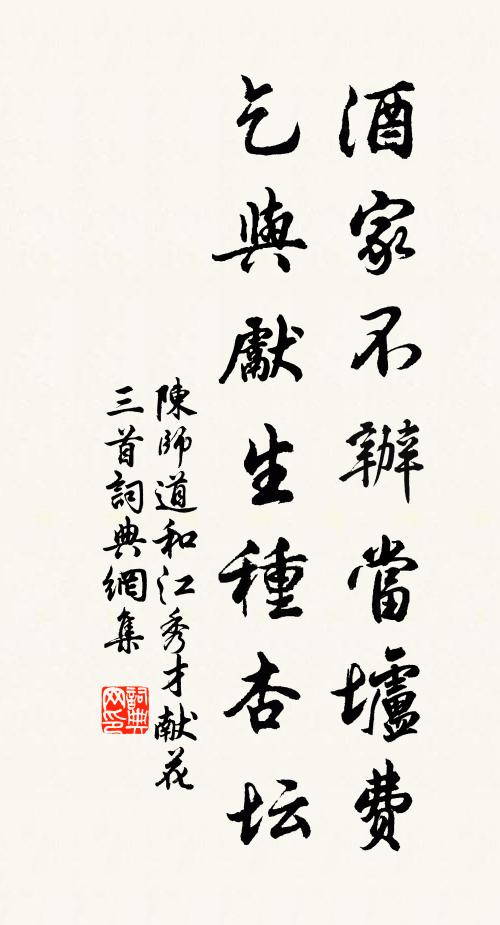 酒家不辦當壚費
乞與獻生種杏坛
陳師道和江秀才献花
三首詞典網集
詞典
网印